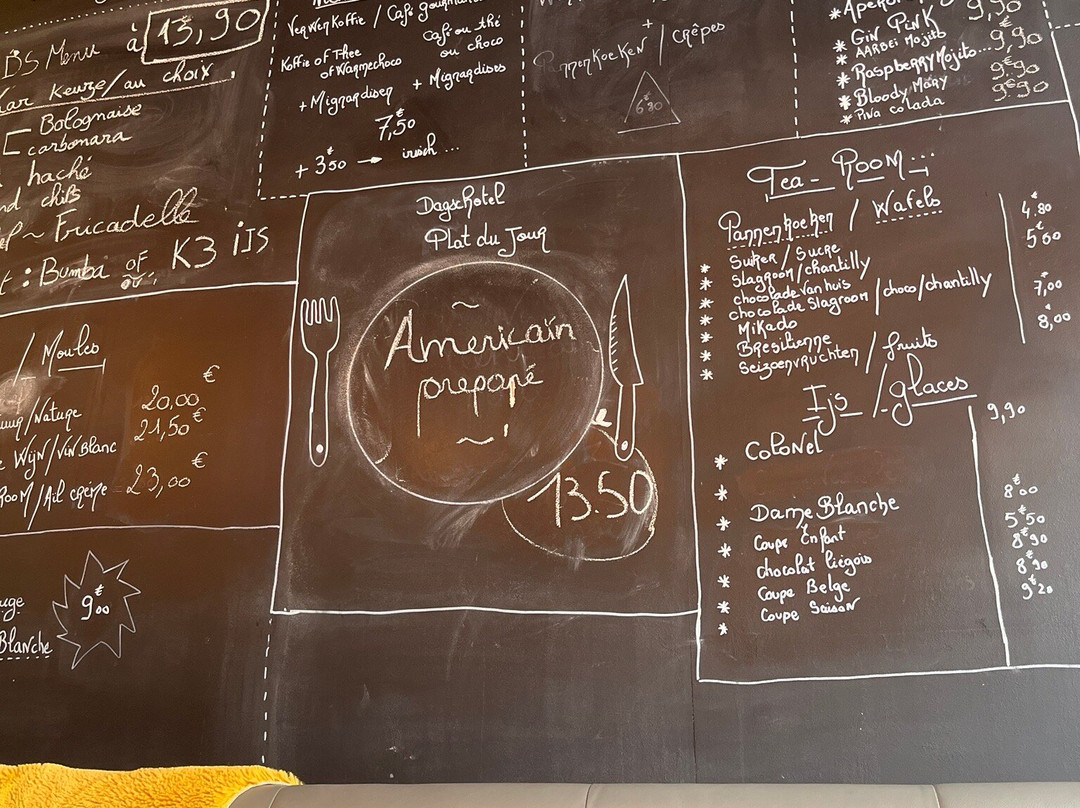 BS Menu à 13,90
keuze/au choix
Bolognaise
carbomara
haché
Fricadelle
: Bumba of K3 ijs
ou
/ Moules
€
/Nature 20,00
Wijn/Vin Blanc 21,50€
Room/Ail crème 23,00€
9€00
Blanche
Verwenkoffie / Café gourmand
Koffie of Thee
of Warmechoco
+ Mignardisen
Café ou thé
ou choco
+ Mignardises
7,€50
+ 3€50 → irish ...
+
Pannenkoeken / Crêpes
6€30
* Gin Pink
* Aardbei Mojito
* Raspberry Mojito... 9,90
* Bloody Mary 9€90
* Pina colada 9€90
Dagschotel
Plat du Jour
~
Americain
prepapé
~ !
13.50
Tea-Room...
Pannenkoeken / Wafels
* Suiker / Sucre 4€80
* Slagroom/chantilly 5€60
* chocolade van huis
* chocolade Slagroom / choco/chantilly
* Mikado 7,00
* Bresilienne
* Seizoenvruchten / fruits 8€00
Ijs / glaces
* Colonel 9,90
*
* Dame Blanche 8€00
* Coupe Enfant 5€50
* chocolat liégois 8€90
* Coupe Belge 8€90
* Coupe Saison 9€20